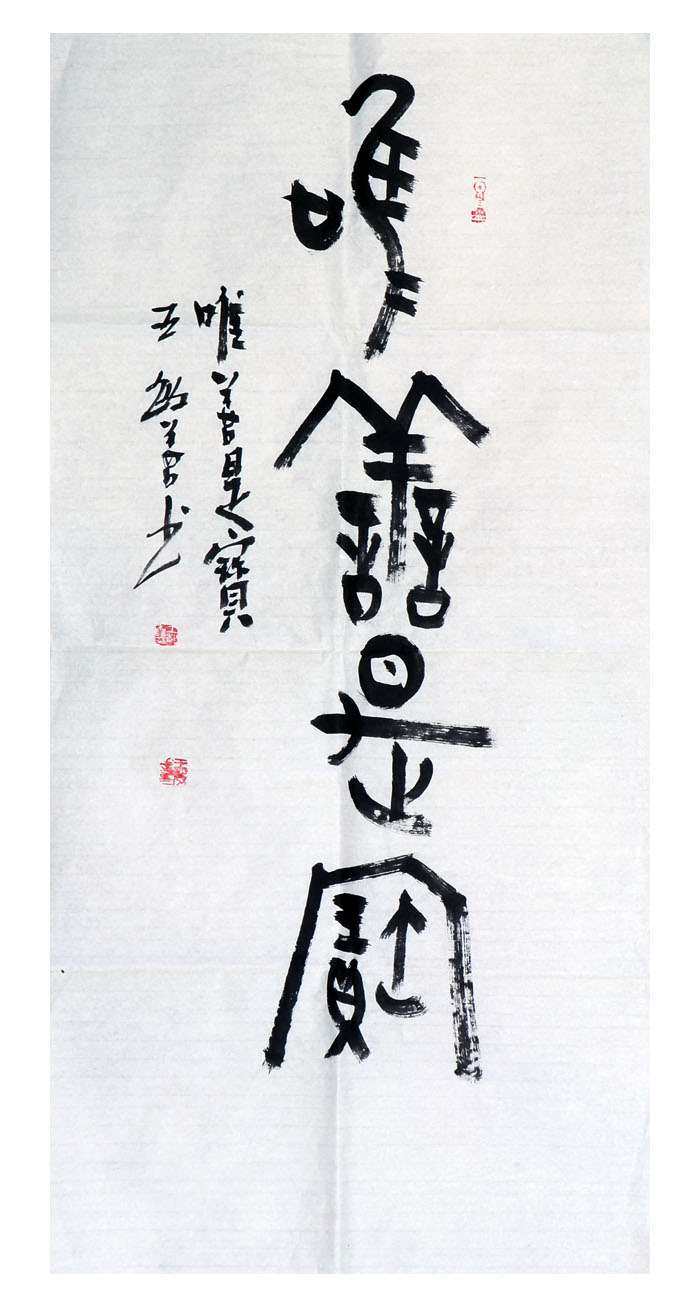 唯善是寶
唯善是寶
王善书